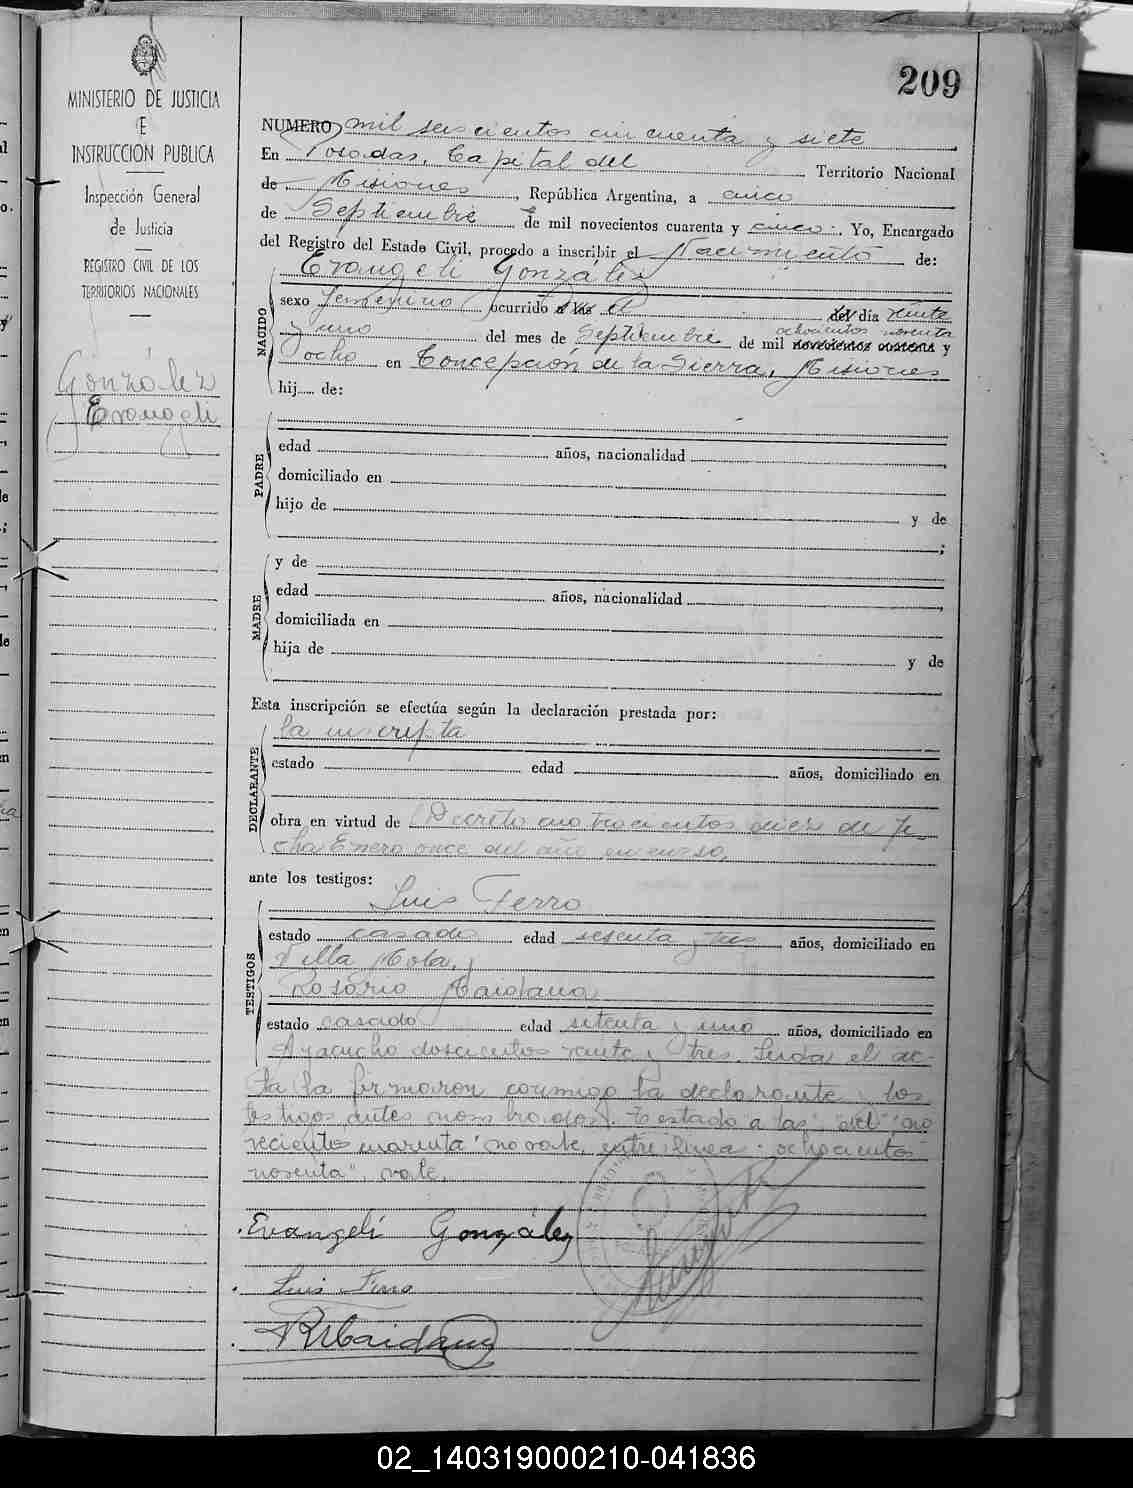 209
MINISTERIO DE JUSTICIA
E
INSTRUCCION PUBLICA
Inspección General
de Justicia
REGISTRO CIVIL DE LOS
TERRITORIOS NACIONALES
González
Evangeli
NUMERO mil seiscientos cincuenta y siete
En Posadas, Capital del Territorio Nacional
de Misiones, República Argentina, a cinco
de Septiembre de mil novecientos cuarenta y cinco. Yo, Encargado
del Registro del Estado Civil, procedo a inscribir el Nacimiento de:
Evangeli González
NACIDO
sexo femenino ocurrido a las el del día veinte
y uno del mes de Septiembre de mil ochocientos noventa novecientos cuarenta y
ocho en Concepción de la Sierra, Misiones
hij...... de:
PADRE
edad años, nacionalidad
domiciliado en
hijo de y de
;
MADRE
y de
edad años, nacionalidad
domiciliada en
hija de y de
Esta inscripción se efectúa según la declaración prestada por:
DECLARANTE
la inscripta
estado edad años, domiciliado en
obra en virtud de Decreto cuatrocientos diez de fe-
cha Enero once del año en curso.
ante los testigos:
TESTIGOS
Luis Ferro
estado casado edad sesenta y tres años, domiciliado en
Villa Mola,
Rosario Maidana
estado casado edad setenta y uno años, domiciliado en
Ayacucho doscientos veinte y tres. Leida el ac-
ta la firmaron conmigo la declarante y los
testigos antes nombrados. Testado a las, "del" "no
vecientos cuarenta" no vale, entre linea: ochocientos
noventa", vale.
Evangelí González
Luis Ferro
RMaidana
02_140319000210-041836